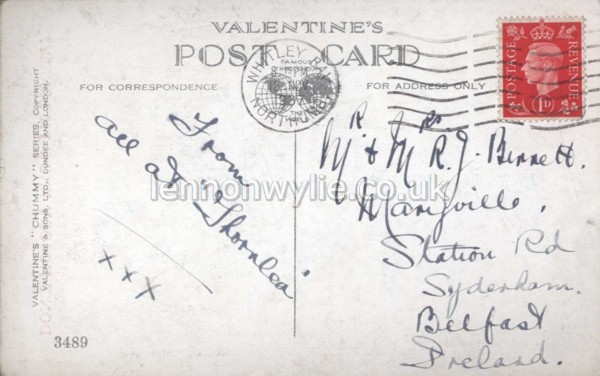 VALENTINE'S
POST CARD
FOR CORRESPONDENCE
FOR ADDRESS ONLY
VALENTINE'S "CHUMMY" SERIES. COPYRIGHT
VALENTINE & SONS, LTD., DUNDEE AND LONDON.
3489
WHITLEY BAY
FAMOUS
NORTHUMB
POSTAGE
REVENUE
1D
From
all at "Thornlea"
x x x
Mr & Mrs R. J. Bennett.
Maryville.
Station Rd
Sydenham.
Belfast
Ireland.
lennonwylie.co.uk